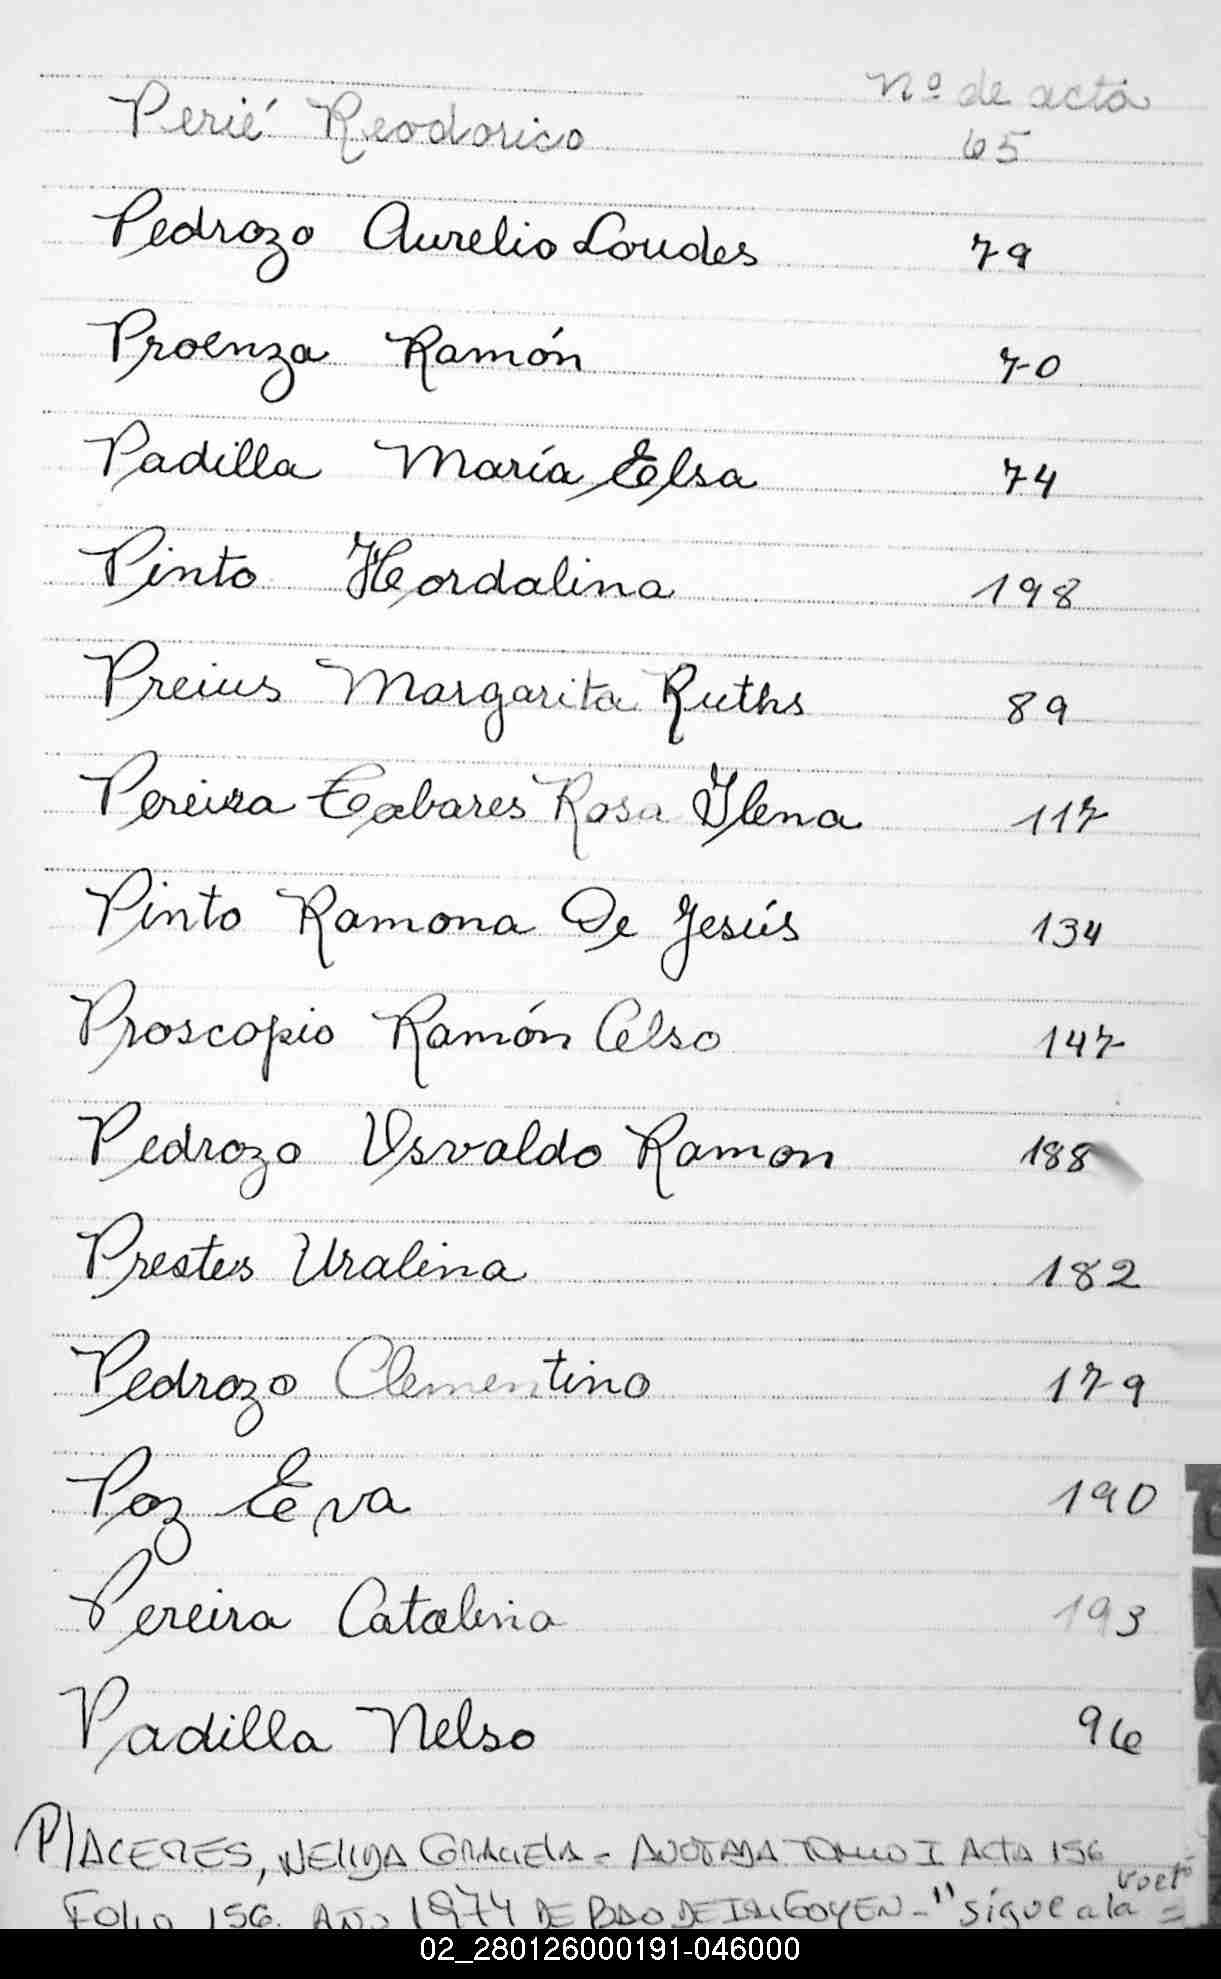 Nº de acta
Perié Reodorico 65
Pedrozo Aurelio Loudes 79
Proenza Ramón 70
Padilla María Elsa 74
Pinto Hordalina 198
Preius Margarita Ruths 89
Pereira Tabares Rosa Ilena 117
Pinto Ramona De Jesús 134
Proscopio Ramón Celso 147
Pedrozo Osvaldo Ramon 188
Prestes Uralina 182
Pedrozo Clementino 179
Paz Eva 190
Pereira Catalina 193
Padilla Nelso 96
PLACERES, NELIDA GRACIELA - ANOTADA TOMO I ACTA 156
FOLIO 156. AÑO 1974 DE BDO DE IRIGOYEN - "sigue a la
02_280126000191-046000